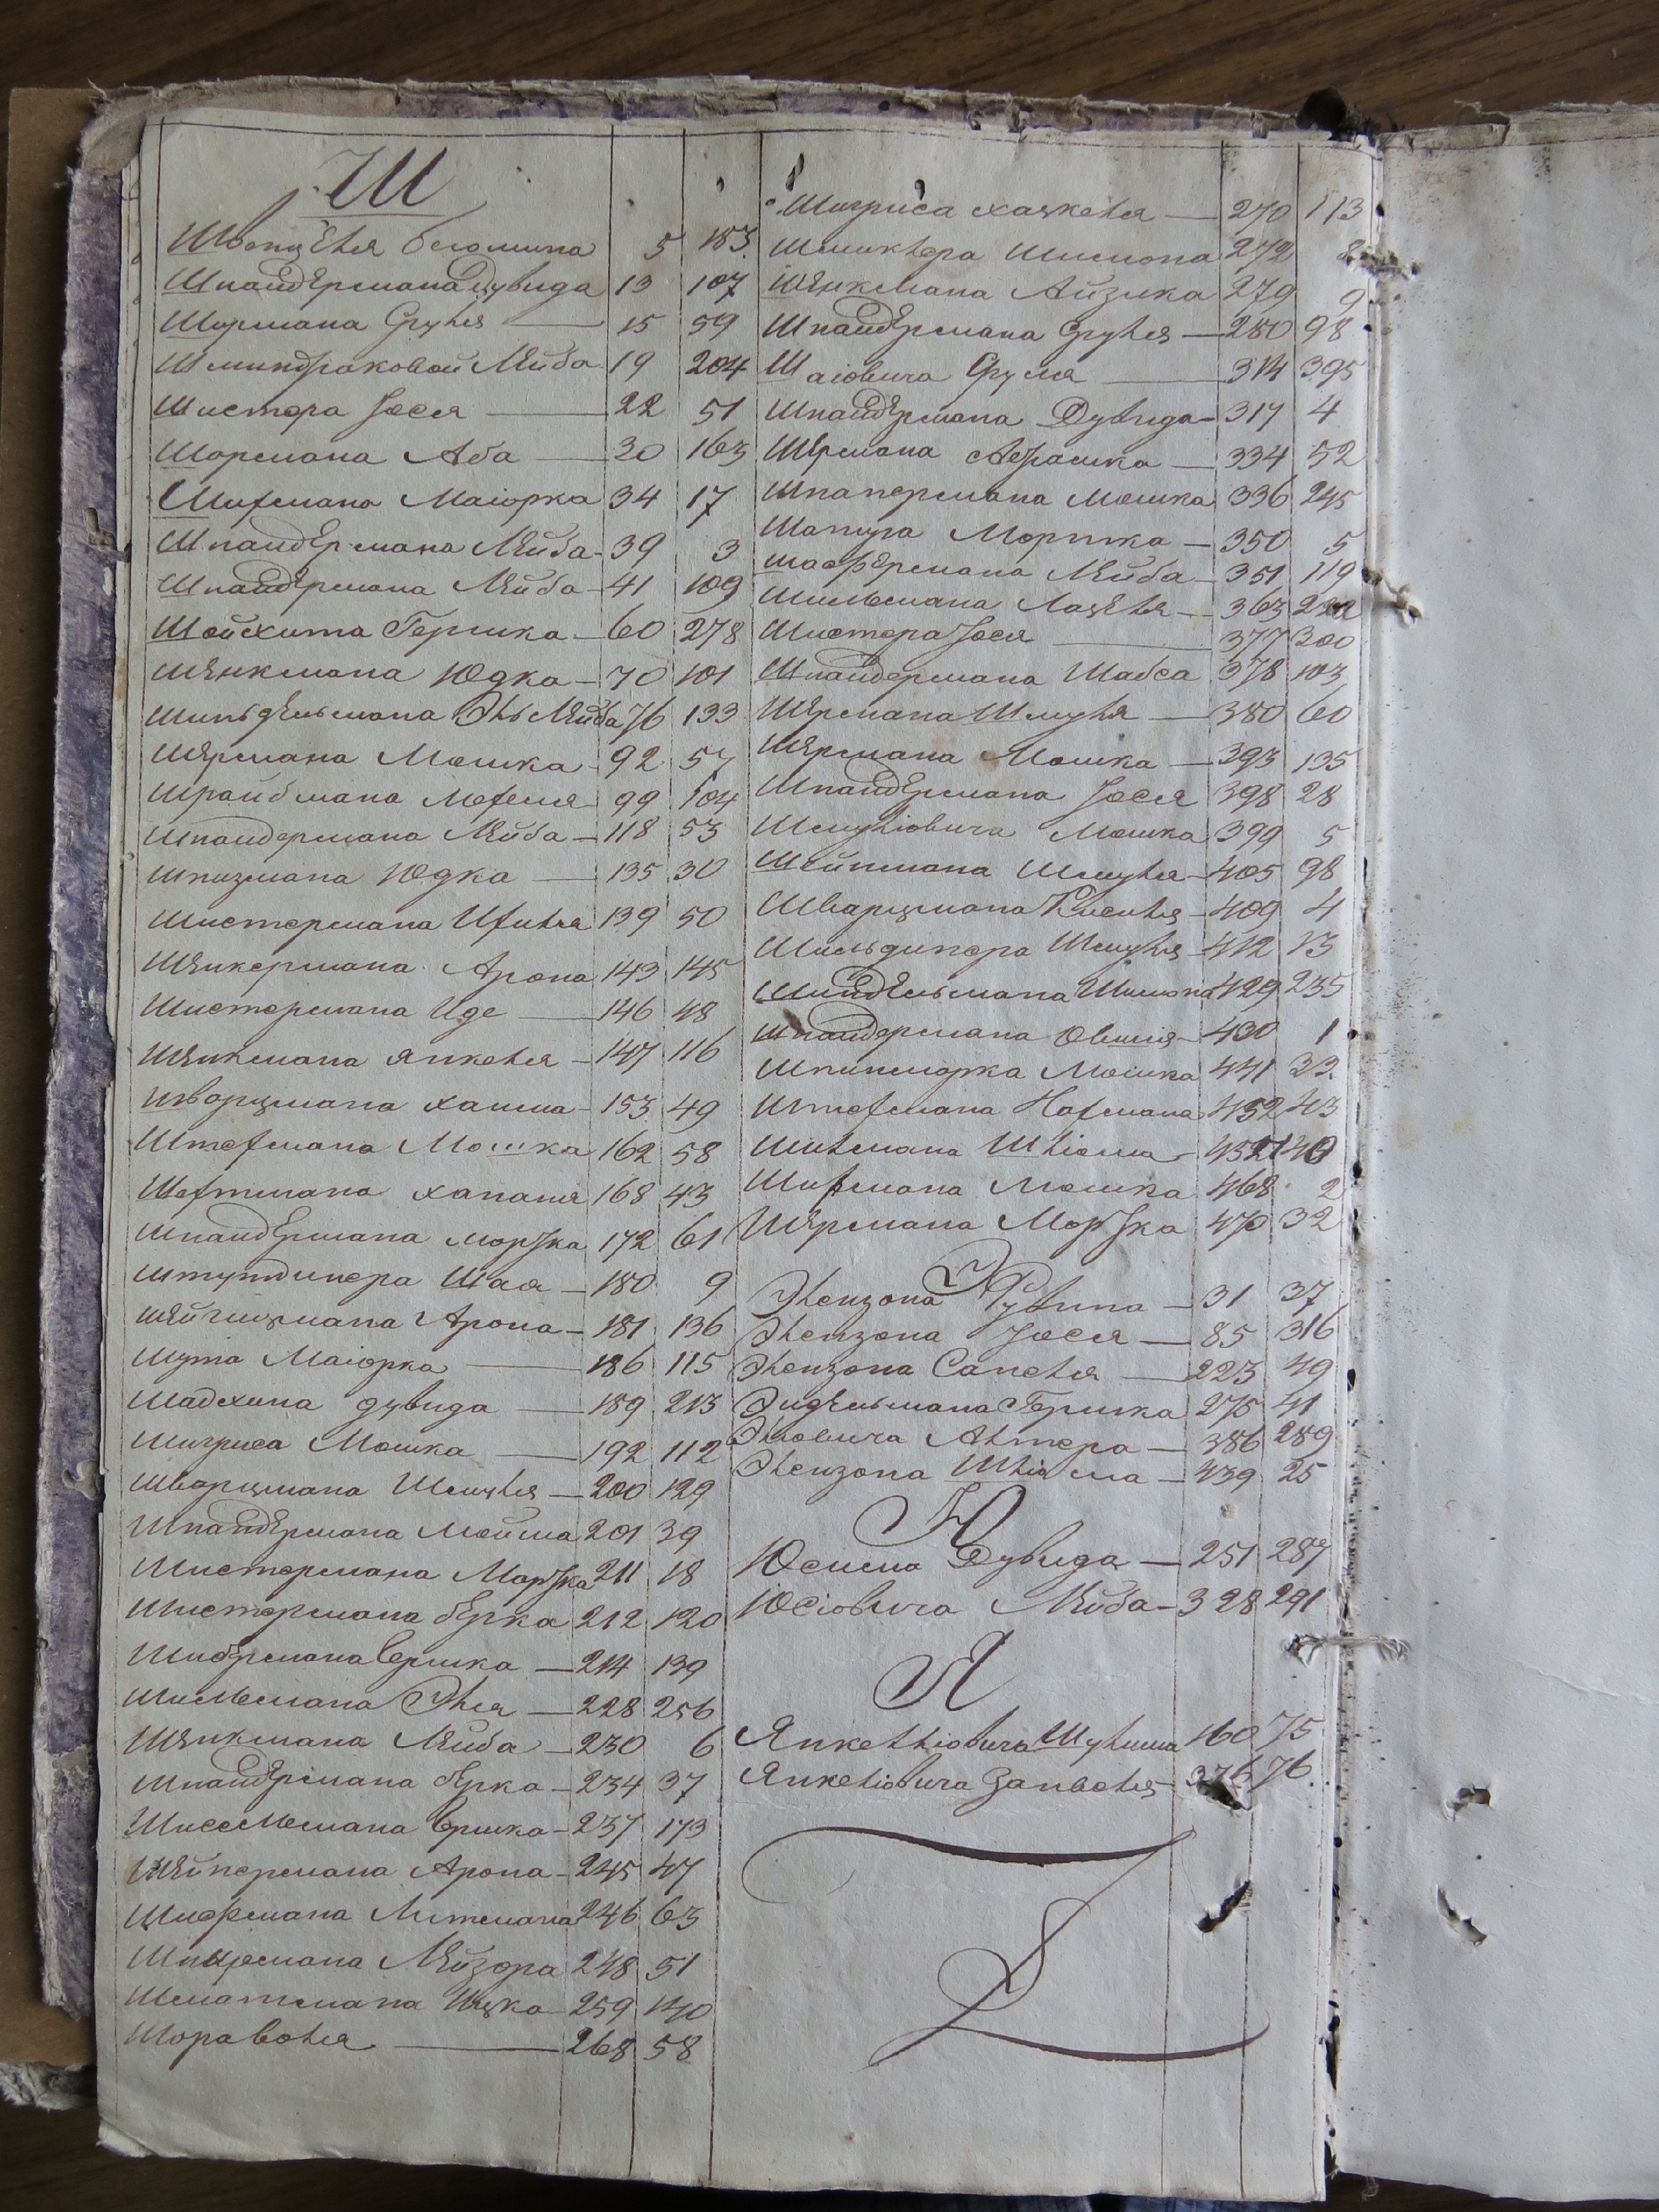 Ш
Швенцѣля Беломина 5 183
Шпандѣрмана Дувида 13 107
Шурмана Сруля 15 59
Шминдраковой Лѣйба 19 204
Шистера Іося 22 51
Шормана Аба 30 163
Шифмана Маіорка 34 17
Шпандѣрмана Лѣйба 39 3
Шпандѣрмана Лѣйба 41 109
Шойхита Гершка 60 278
Шѣнкмана Юдка 70 101
Шиндѣльмана Эль Лѣйба 76 133
Шѣрмана Мошка 92 57
Шрайбмана Мотеля 99 104
Шпандермана Лѣйба 118 53
Шпизмана Юдка 135 30
Шистермана 139 50
Шѣнкермана Арона 143 145
Шистермана Иде 146 48
Шѣнкмана Янкеля 147 116
Шварцмана Хаима 153 49
Штофмана Мошка 162 58
Шофтмана Хапаня 168 43
Шпандѣрмана Мордка 172 61
Штутдинера Шая 180 9
Арона 181 136
Шута Маіорка 186 115
Шадхина Дувида 189 213
Шигриса Мошка 192 112
Шварцмана Шмуля 200 129
Шпандѣрмана Мойша 201 39
Шистермана Мордка 211 18
Шистермана Бѣрка 212 120
Ершка 214 139
Шильмана Эля 228 256
Шѣнкмана Лѣйба 230 6
Шпандѣрмана Бѣрка 234 37
Ершка 237 173
Шѣйнермана Арона 245 47
Шифмана Литмана 246 63
Лѣйзора 248 51
Шматмана Ицка 259 140
Шора Вовля 268 58
Шигриса Хацкеля 270 113
Шмиклера Шимона 272
Шѣнкмана Айзика 279 9
Шпандѣрмана Сруля 280 98
Шаіовича Сруля 314 395
Шпандѣрмана Дувида 317 4
Шѣрмана Абрамка 334 52
Шпапермана Мошка 336 245
Шапира Мортка 350 5
Шафѣрмана Лѣйба 351 119
Шильмана Лазѣля 363
Шистера Іося 377 300
Шпандермана Шабса 378 103
Шѣрмана Шмуля 380 60
Шѣрмана Мошка 393 135
Шпандѣрмана Іося 398 28
Шмуліовича Мошка 399 5
Шейнмана Шмуля 405 98
Шварцмана Киселя 409 4
Шильдинера Шмуля 412 13
Шиндѣльмана Шимона 429 235
Шпандермана Овшія 430 1
Шпинморка Мошка 441 33
Штофмана Нафмана 452 43
Шильмана Шліома 452 140
Шифмана Мошка 468 2
Шѣрмана Мордка 470 32
Э
Элензона Рувина 31 37
Элензона Іося 85 316
Элензона Сапеля 223 49
Эидѣльмана Гершка 275 41
Эліовича Алтера 386 289
Элензона Шліома 439 25
Ю
Юсима Дувида 251 287
Юсіовича Лѣйба 328 291
Я
Янкелліовича Шулима 160 75
Янкеліовича Занвеля 376 76